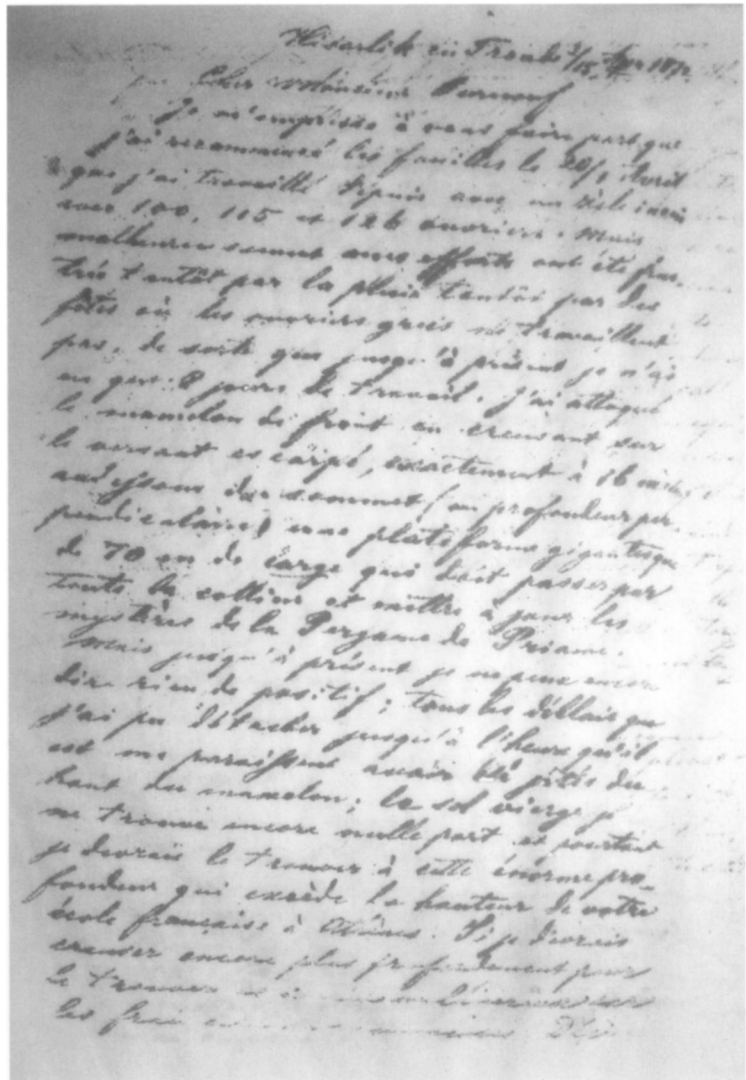 Hisarlik en Troade 3/15 Avr 1872
Cher Monsieur Burnouf
Je m'empresse à vous faire part que
j'ai recommencé les fouilles le 20/1 Avril
& que j'ai travaillé depuis avec un zèle inouï
avec 100, 115 et 126 ouvriers. Mais
malheureusement mes efforts ont été frus-
trés tantôt par la pluie tantôt par des
fêtes où les ouvriers grecs ne travaillent
pas, de sorte que jusqu'à présent je n'ai
eu que 8 jours de travail. J'ai attaqué
le mamelon de front en creusant sur
le versant escarpé, exactement à 16
audessous du sommet (en profondeur per-
pendiculaire) une plateforme gigantesque
de 70 m de large qui doit passer par
toute la colline et mettre à jour les
mystères de la Pergame de Priam.
Mais jusqu'à présent je ne peux encore
dire rien de positif; tous les déblais que
j'ai pu détacher jusqu'à l'heure qu'il
est me paraissent avoir été jetés du
haut du mamelon; le sol vierge je
ne trouve encore nulle part et pourtant
je devrais le trouver à cette énorme pro-
fondeur qui excède la hauteur de votre
école française à Athènes. Si je devrais
creuser encore plus profondement pour
le trouver
les frais